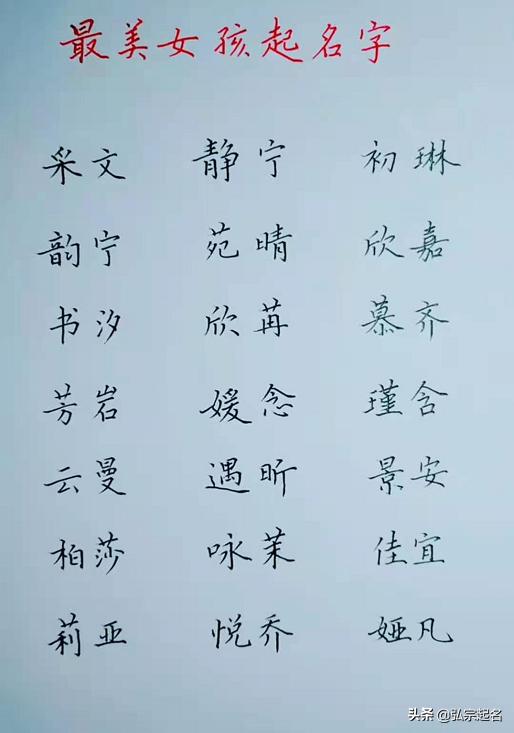 最美女孩起名字
采文 静宁 初琳
韵宁 苑晴 欣嘉
书汐 欣苒 慕齐
芳岩 媛念 瑾含
云曼 遇昕 景安
柏莎 咏茉 佳宜
莉亚 悦乔 娅凡
头条 @弘宗起名